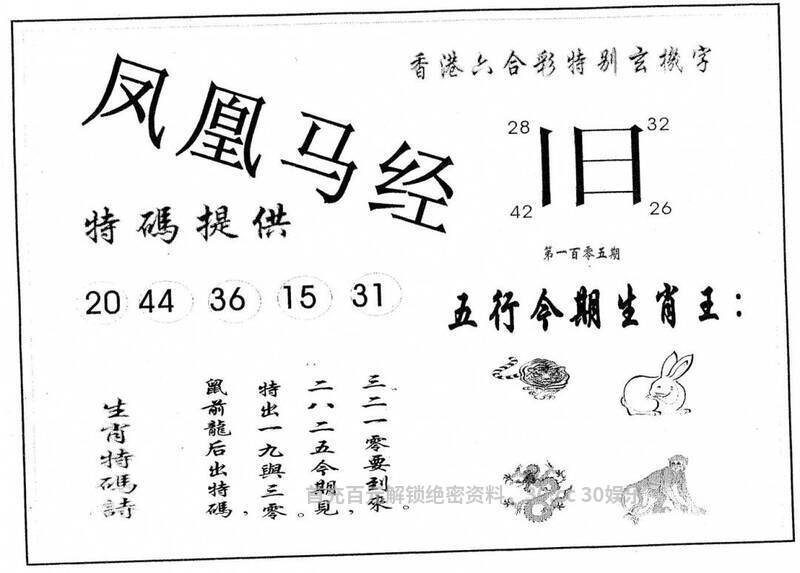 香港六合彩特别玄機字
凤凰马经
28
32
旧
42
26
特碼提供
第一百零五期
20 44 36 15 31
五行今期生肖王：
三二一零要到來。
二八二五今期見，
特出一九與三零。
鼠前龍后出特碼，
生肖特碼詩
首充百元解锁绝密资料
c 30娱乐